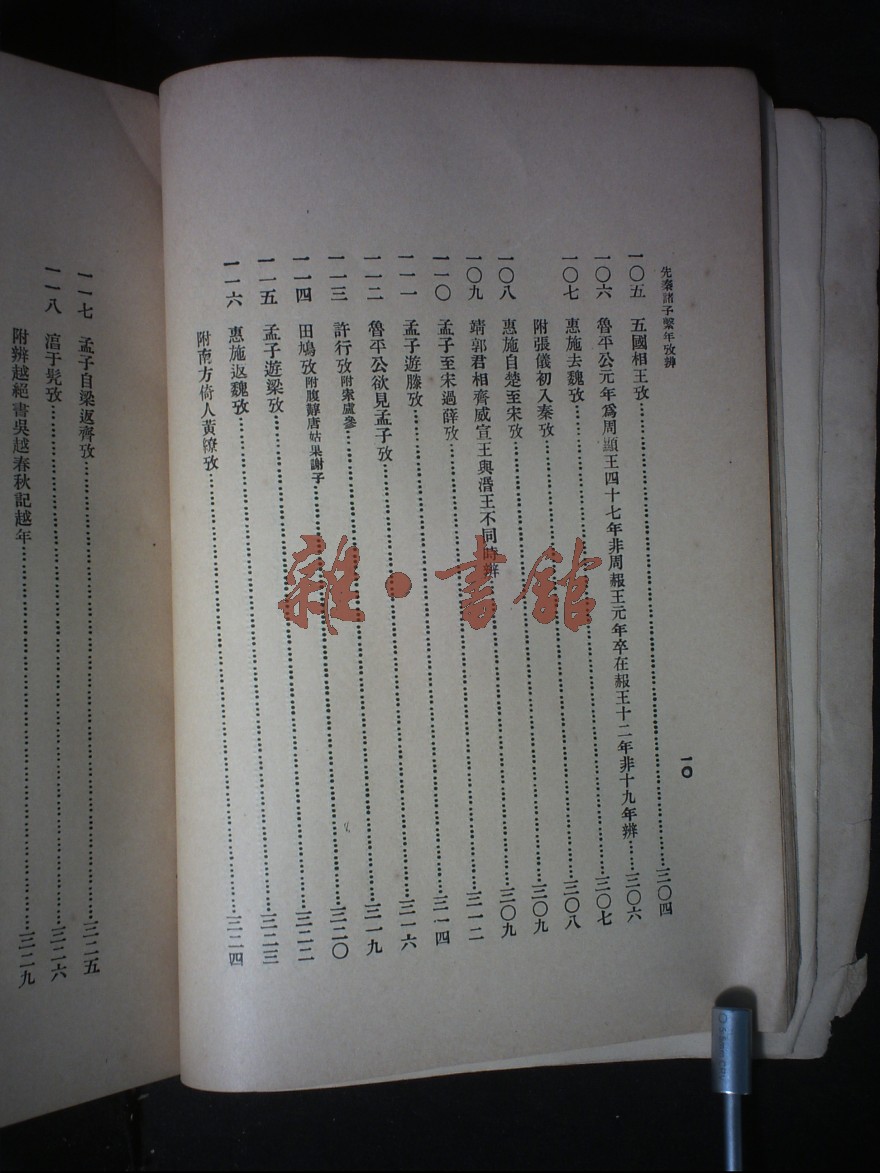 先秦諸子繫年攷辨
一〇
一〇五 五國相王攷……三〇四
一〇六 魯平公元年爲周顯王四十七年非周赧王元年卒在赧王十二年非十九年辨……三〇六
一〇七 惠施去魏攷……三〇七
附張儀初入秦攷……三〇八
一〇八 惠施自楚至宋攷……三〇九
一〇九 靖郭君相齊威宣王與湣王不同時辨……三〇九
一一〇 孟子至宋過薛攷……三一二
一一一 孟子遊滕攷……三一四
一一二 魯平公欲見孟子攷……三一六
一一三 許行攷附索盧參……三一九
一一四 田鳩攷附腹䵍唐姑果謝子……三二〇
一一五 孟子遊梁攷……三二二
一一六 惠施返魏攷……三二三
附南方倚人黃繚攷……三二四
一一七 孟子自梁返齊攷……三二五
一一八 湻于髠攷……三二六
附辨越絕書吳越春秋記越年……三二九
雜·書館